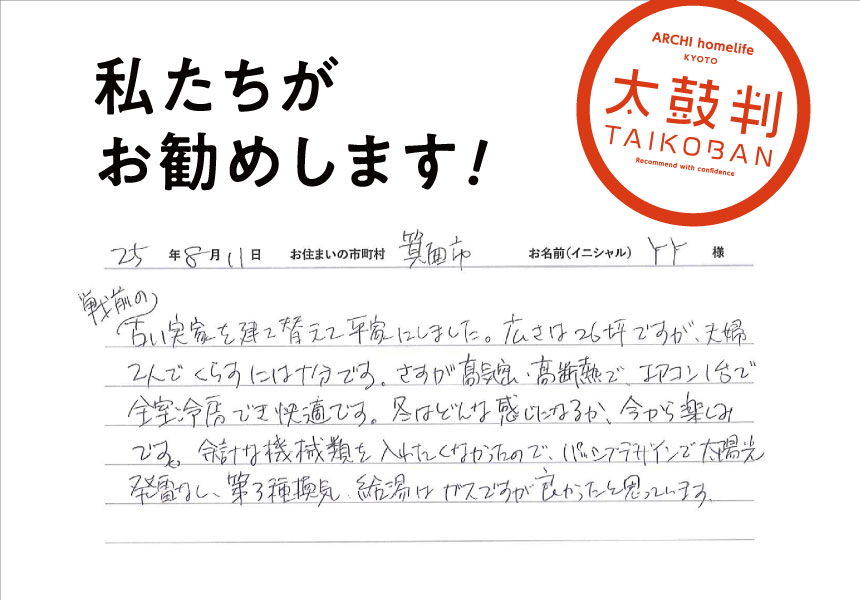 私たちが
お勧めします!
ARCHI homelife
KYOTO
太鼓判
TAIKOBAN
Recommend with confidence
25 年 8 月 11 日 お住まいの市町村 箕面市 お名前(イニシャル) Y Y 様
戦前の
古い実家を建て替えて平家にしました。広さは26坪ですが、夫婦
2人でくらすには十分です。さすが高気密・高断熱で、エアコン1台で
全室冷房でき快適です。冬はどんな感じになるか、今から楽しみ
です。余計な機械類を入れたくなかったので、パッシブデザインで太陽光
発電なし、第3種換気、給湯はガスですが良かったと思っています。